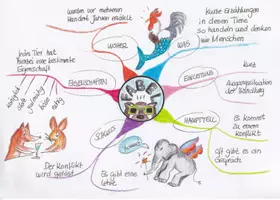 wurden vor mehreren
Hundert Jahren erzählt
WOHER
Kurze Erzählungen
in denen Tiere
so handeln und denken
wie Menschen
WAS
Jedes Tier hat
hierbei eine bestimmte
Eigenschaft
EIGENSCHAFTEN
FABEL
EINLEITUNG
Kurz
Ausgangssituation
der Handlung
HAUPTTEIL
Es kommt
zu einem
Konflikt
Oft gibt es ein
Gespräch
SCHLUSS
Der Konflikt
wird gelöst
Es gibt eine
Lehre